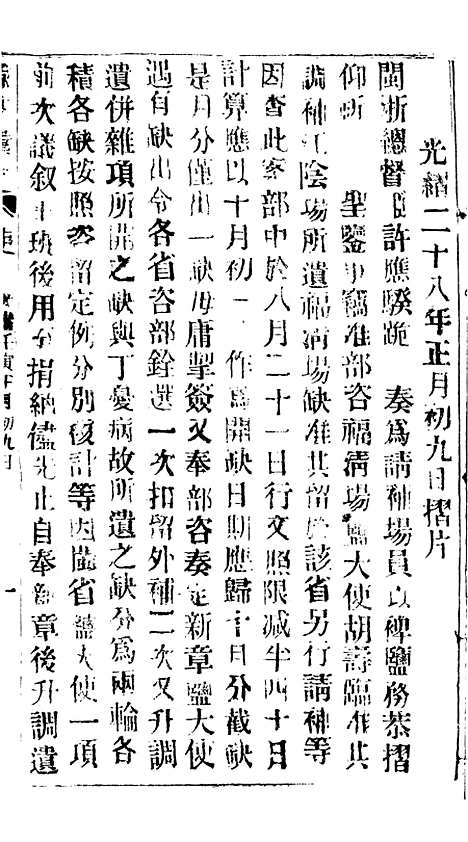 光緒二十八年正月初九日摺片
閩浙總督臣許應騤跪　奏爲請補場員以裨鹽務恭摺
仰祈　聖鑒事竊准部咨福淸場鹽大使胡壽臨准其
調補江陰場所遺福淸場缺准其留於該省另行請補等
因查此案部中於八月二十一日行文照限減半四十日
計算應以十月初一　作爲開缺日期應歸十月分截缺
是月分僅出一缺毋庸掣簽又奉部咨奏定新章鹽大使
遇有缺出令各省咨部銓選一次扣留外補二次又升調
遺併雜項所開之缺與丁憂病故所遺之缺分爲兩輪各
積各缺按照咨留定例分別核計等因閩省鹽大使一項
前次議叙　班後用至捐納儘先止自奉新章後升調遺
壬寅　月初九日